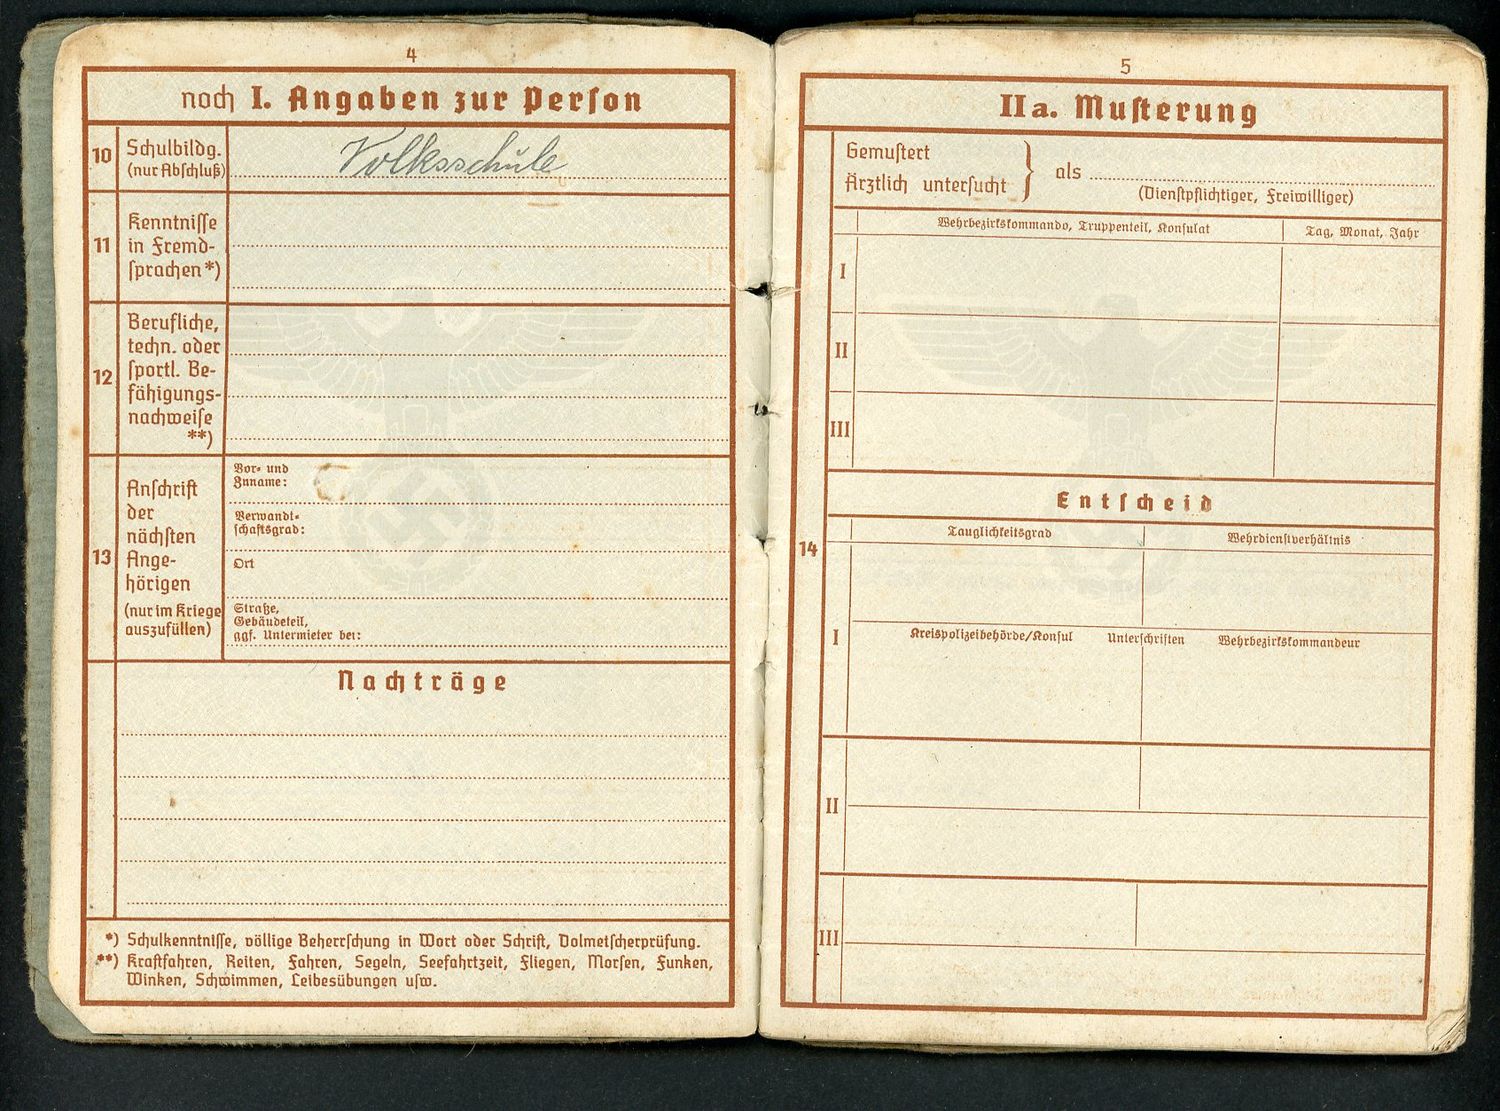 4
noch I. Angaben zur Person
10 Schulbildg. Volksschule
(nur Abschluß)
11 Kenntnisse
in Fremd-
sprachen*)
12 Berufliche,
techn. oder
sportl. Be-
fähigungs-
nachweise
**)
13 Anschrift
der
nächsten
Ange-
hörigen
(nur im Kriege
auszufüllen)
Vor- und
Zuname:
Verwandt-
schaftsgrad:
Ort
Straße,
Gebäudeteil,
ggf. Untermieter bei:
Nachträge
*) Schulkenntnisse, völlige Beherrschung in Wort oder Schrift, Dolmetscherprüfung.
**) Kraftfahren, Reiten, Fahren, Segeln, Seefahrtzeit, Fliegen, Morsen, Funken,
Winken, Schwimmen, Leibesübungen usw.
5
IIa. Musterung
Gemustert
Ärztlich untersucht } als
(Dienstpflichtiger, Freiwilliger)
Wehrbezirkskommando, Truppenteil, Konsulat Tag, Monat, Jahr
I
II
III
Entscheid
14
Tauglichkeitsgrad Wehrdienstverhältnis
I
Kreispolizeibehörde/Konsul Unterschriften Wehrbezirkskommandeur
II
III